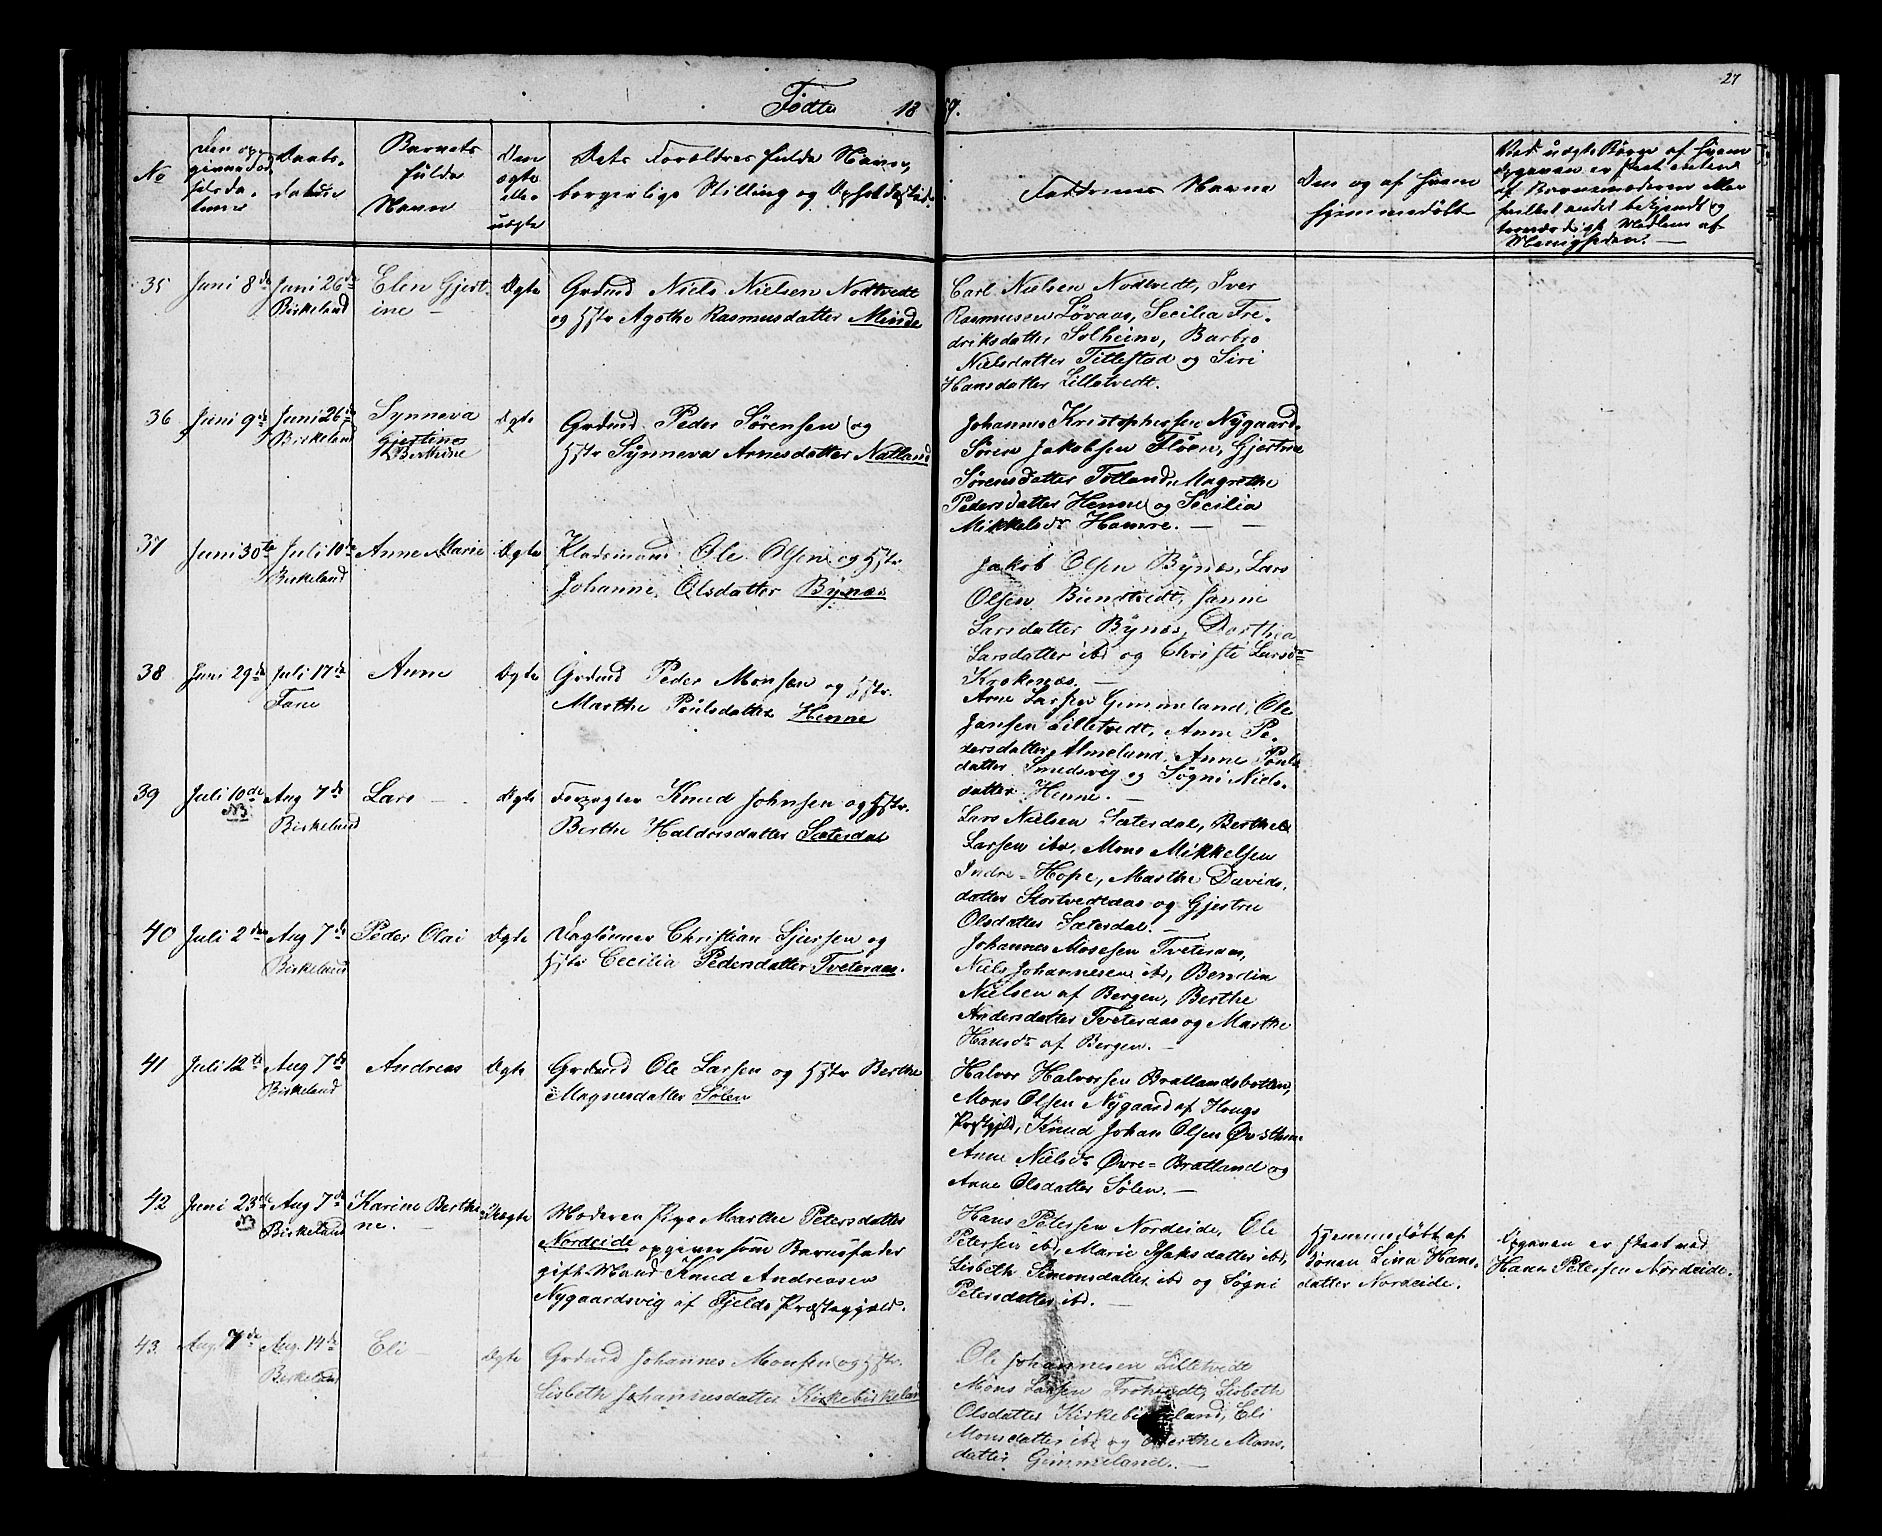 27
Fødte 18 59.
No
Den op-
givne Fød-
selsda-
tum
Daabs-
datum
Barnets
fulde
Navn
Om
ægte
eller
uægte
Dets Forældres fulde Navne,
borgerlige Stilling og Opholdssted.
Faddrenes Navne
Om og af hvem
hjemmedøbt
Ved uægte Børn af hvem
Opgaven er skeet enten
af Barnemoderen eller
hvilket andet bekjendt og
troværdigt Medlem af
Menigheden. —
35 Juni 8de Juni 26de Elen Gjert- Ægte Grdmd Niels Nielsen Nodtvedt
Birkeland ine — og Hstr Agothe Rasmusdatter Minde
Carl Nielsen Nodtvedt, Iver
Rasmusen Løvaas, Secilia Fre-
driksdatter Solheim, Barbro
Nielsdatter Titlestad og Siri
Hansdatter Lilletvedt.
36 Juni 9de Juni 26de Synneva Ægte Grdmd Peder Sørensen og
Birkeland Gjertine Hstr Synneva Arnesdatter Natland
Berthine
Johannes Kristophersen Nygaard.
Søren Jakobsen Fløen, Gjertine
Sørensdatter Totland, Magrethe
Pedersdatter Henne og Secilia
Mikkelsdr Hamre. —
37 Juni 30te Juli 10de Anne Marie Ægte Pladsmand Ole Olsen og Hstr.
Birkeland Johanne Olsdatter Bynæs
Jakob Olsen Bynæs, Lars
Olsen Bundtvedt, Hanne
Larsdatter Bynæs, Dorthea
Larsdatter ibd og Christi Larsdr
Krokenæs. —
38 Juni 29de Juli 17de Anne Ægte Grdmd Peder Monsen og Hstr.
Fane Marthe Poulsdatter Henne
Arne Larsen Gimmeland, Ole
Jansen Lilletvedt, Anne Pe-
dersdatter Almeland, Anne Pouls-
datter Smedsvig og Søgni Niels-
datter Henne. —
39 Juli 10de Aug 7de Lars — Ægte Forpagter Knud Johnsen og Hstr.
NB. Birkeland Berthe Haldorsdatter Sæterdal
Lars Nielsen Sæterdal, Berthel
Larsen ibd, Mons Mikkelsen
Indre-Hope, Marthe Davids-
datter Stortvedtaas og Gjertru
Olsdatter Sæterdal. —
40 Juli 2den Aug 7de Peder Olai Ægte Daglønner Christian Sjursen og
Birkeland Hstr Cecilia Pedersdatter Tveteraas.
Johannes Mosesen Tveteraas,
Niels Johannesen ibd, Bendix
Nielsen af Bergen, Berthe
Andersdatter Tveteraas og Marthe
Hansdr af Bergen. —
41 Juli 12te Aug 7de Andreas Ægte Grdmd Ole Larsen og Hstr Berthe
Birkeland Magnesdatter Sølen
Halvor Halvorsen Bratlandsbotten,
Mons Olsen Nygaard af Hougs
Præstgjld, Knud Johan Olsen Øvsthuus
Anne Nielsdr Øvre-Bratland og
Anne Olsdatter Sølen. —
42 Juni 23de Aug 7de Karine Berthe- Uægte Moderen Pige Marthe Petersdatter
NB Birkeland ne. — Nordeide opgiver som Barnefader
gift Mand Knud Andreasen
Nygaardsvig af Fjelds Præstegjæld.
Hans Petersen Nordeide, Ole
Petersen ibd, Marie Isaksdatter ibd,
Lisbeth Simonsdatter ibd og Søgni
Petersdatter ibd. —
Hjemmedøbt af
Konen Lina Hans-
datter Nordeide.
Opgaven er skeet ved
Hans Petersen Nordeide.
43. Aug. 7de Aug. 14de Eli — Ægte Grdmd Johannes Monsen og Hstr.
Birkeland Lisbeth Johannesdatter Kirkebirkeland
Ole Johannesen Lilletvedt
Mons Larsen Trohvedt, Lisbeth
Olsdatter Kirkebirkeland, Eli
Monsdatter ibd og Berthe Mons-
datter Gimmeland. —